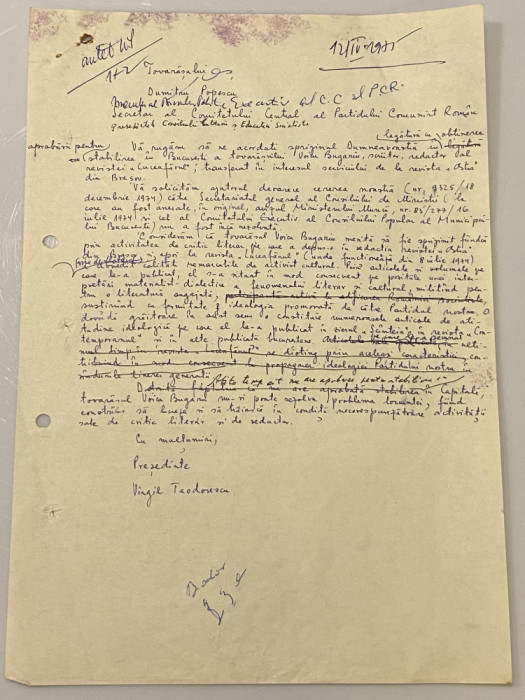 12/IV-1975
1+2 Tovarășului
Dumitru Popescu
Executiv al C.C al P.C.R.
Secretar al Comitetului Central al Partidului Comunist Român
Președintele Consiliului Culturii și Educației Socialiste
legătura cu obținerea
aprobării pentru Vă rugăm să ne acordați sprijinul Dumneavoastră în legătură
stabilirea în București a tovarășului Voicu Bugariu, scriitor, redactor al
revistei "Luceafărul", transferat în interesul serviciului de la revista "Astra"
din Brașov.
Vă solicităm ajutorul deoarece cererea noastră (nr. 9325/18
decembrie 1974) către Secretariatul general al Consiliului de Miniștri (la
care au fost anexate, în original, avizul Ministerului Muncii, nr. 85/277/16
iulie 1974) și cel al Comitetului Executiv al Consiliului Popular al Municipiu-
lui București) nu a fost încă rezolvată.
Considerăm că tovarășul Voicu Bugariu merită să fie sprijinit fiindcă
prin activitatea de critic literar pe care a depus-o în redacția revistei "Astra"
din Brașov și apoi la revista "Luceafărul" (unde funcționează din 8 iulie 1974)
calități remarcabile de activist cultural. Prin articolele și volumele pe
care le-a publicat, el s-a situat în mod consecvent pe pozițiile unei inter-
pretări materialist-dialectice a fenomenului literar și cultural, militînd pen-
tru o literatură angajată,
susținînd cu fermitate ideologia promovată de către Partidul nostru. O
dovadă grăitoare în acest sens o constituie numeroasele articole de ati-
tudine ideologică pe care el le-a publicat în ziarul "Scînteia", în revista "Con-
temporanul" și în alte publicații bucureștene.
timp în revista "Luceafărul" se disting prin aceleași caracteristici, con-
tribuind în mod consecvent la propagarea ideologiei Partidului nostru în
rîndurile tinerei generații.
Atîta timp cît nu are aprobare pentru stabilirea în
Datorită faptului că nu are aprobată stabilirea în Capitală,
tovarășul Voicu Bugariu nu-și poate rezolva problema locuinței, fiind
constrîns să lucreze și să trăiască în condiții necorespunzătoare activității
sale de critic literar și de redactor.
Cu mulțumiri,
Președinte
Virgil Teodorescu